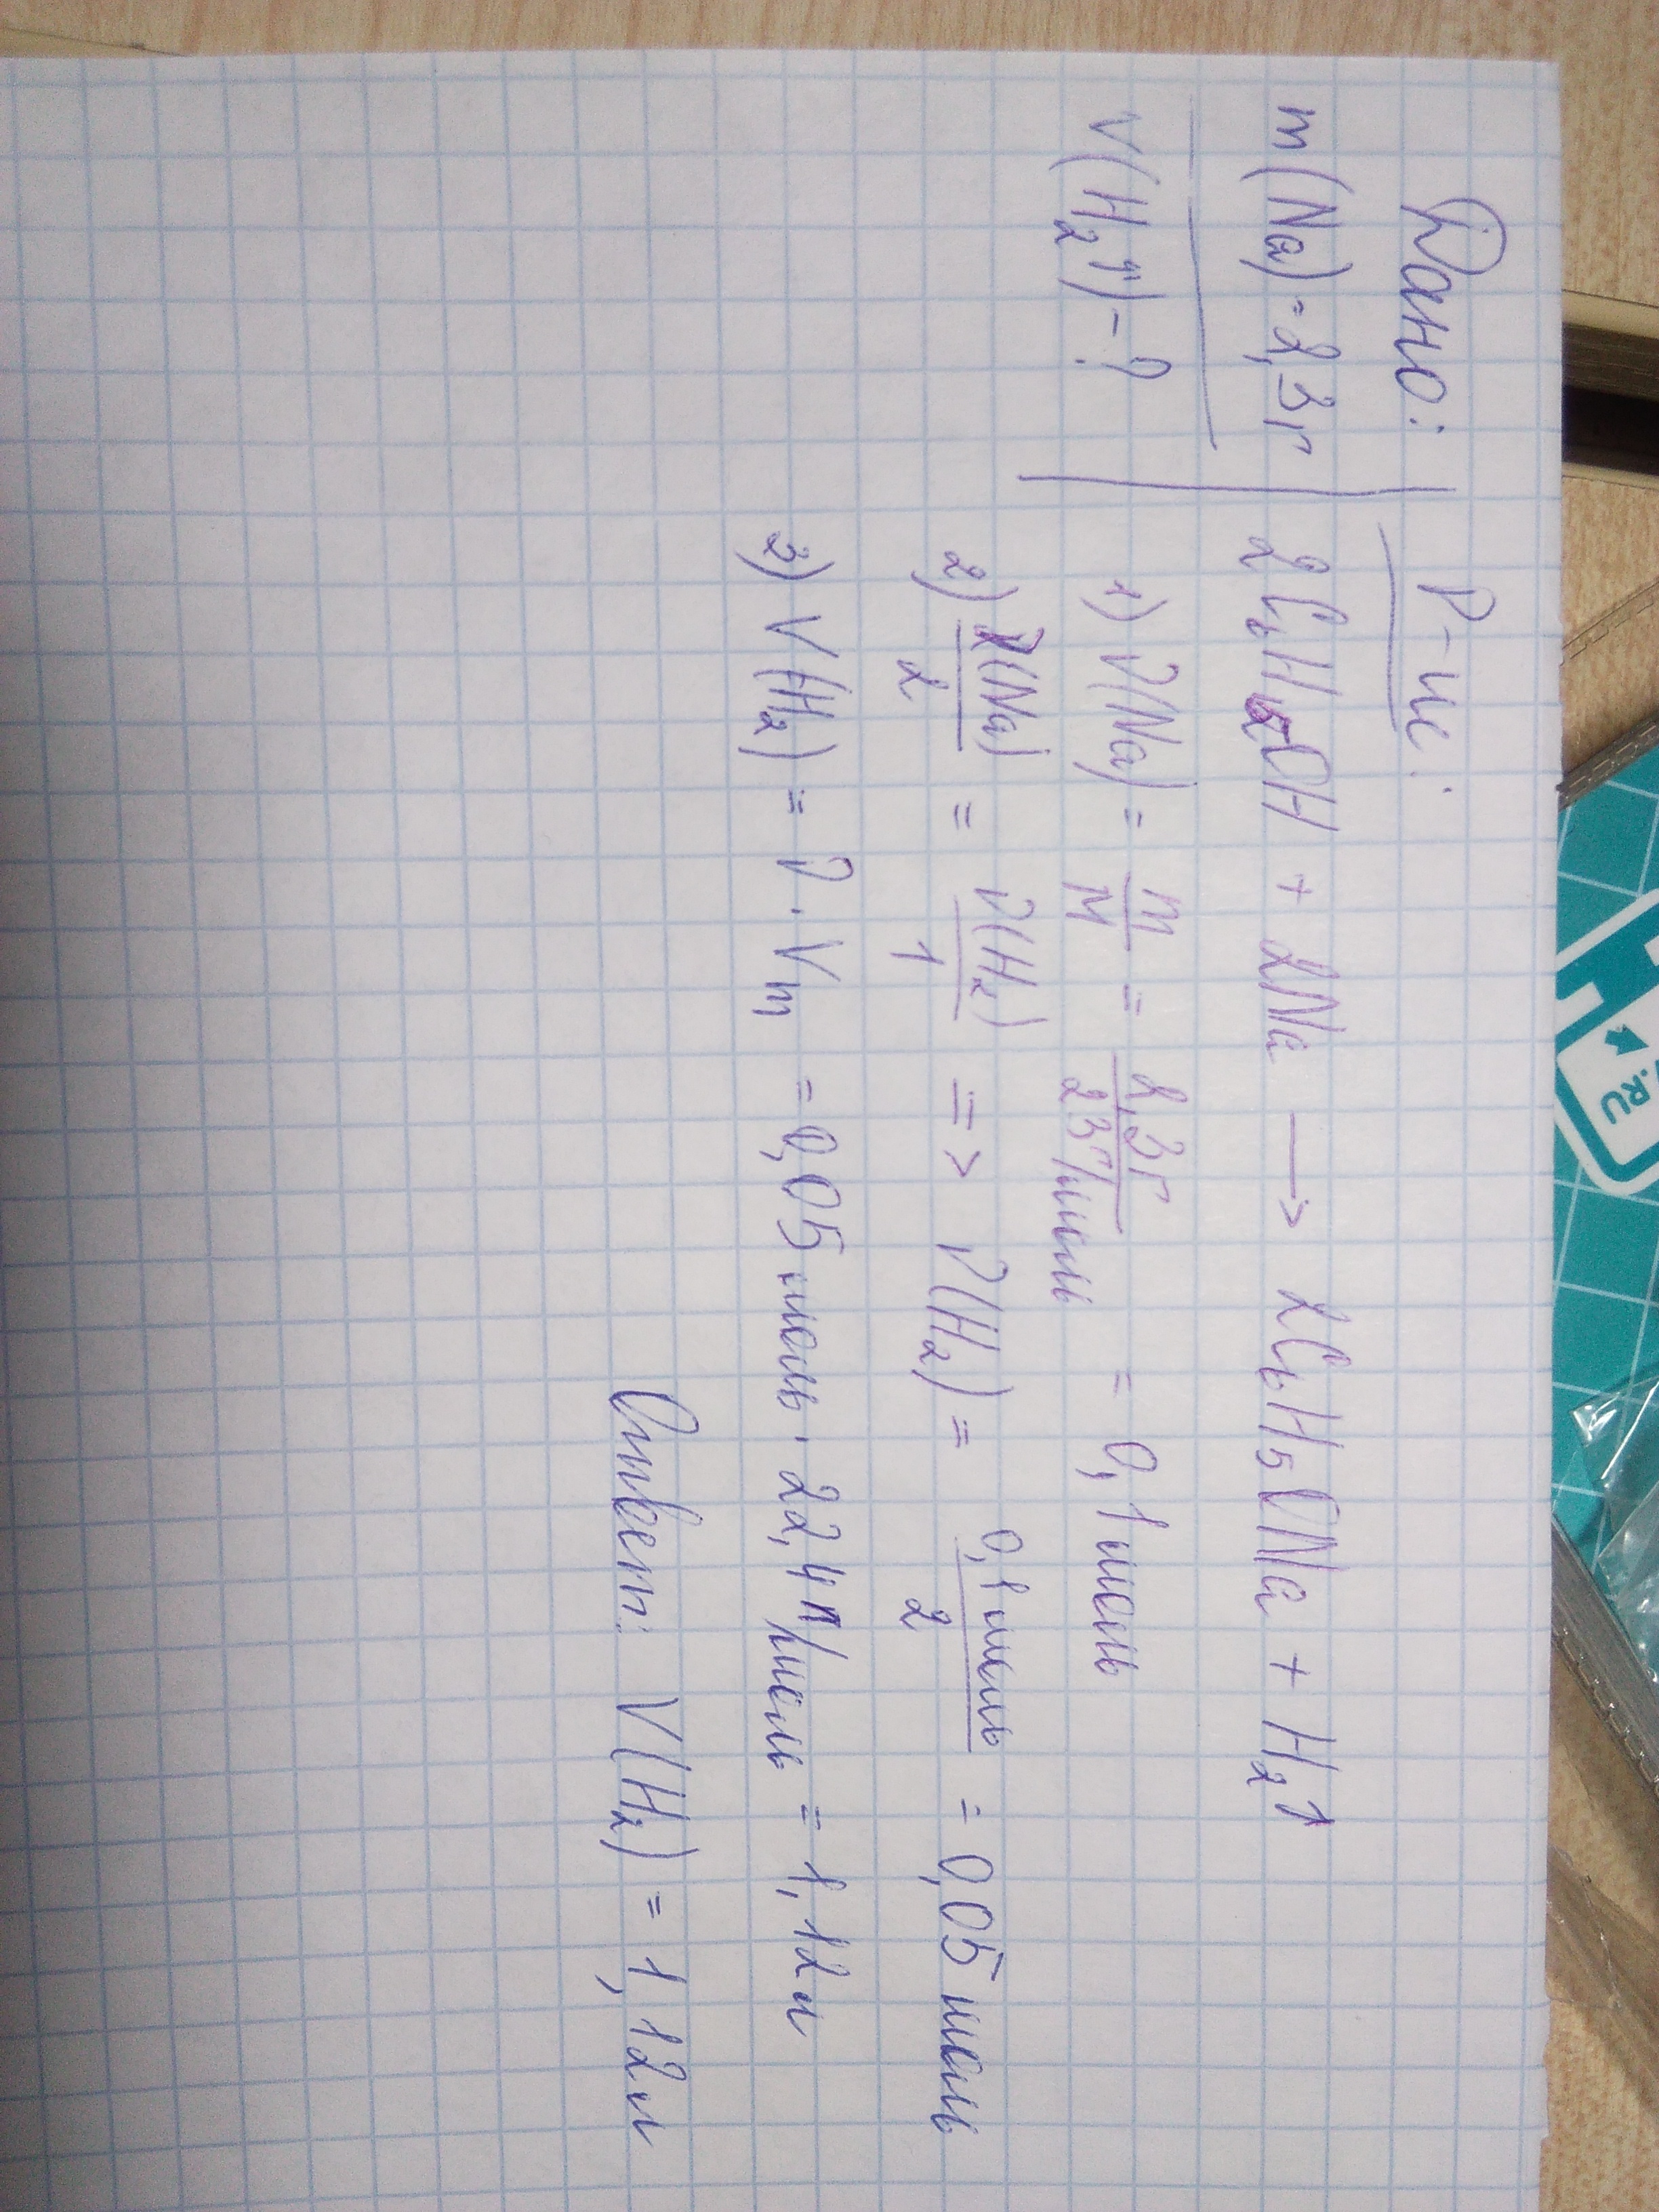 Дано:
m(Na)=2,3г
V(H₂↑)-?
Р-ие:
2C₆H₅OH + 2Na ⟶ 2C₆H₅ONa + H₂↑
1) ν(Na) = m/M = 2,3г/23г/моль = 0,1моль
2) ν(Na)/2 = ν(H₂)/1 => ν(H₂) = 0,1моль/2 = 0,05моль
3) V(H₂) = ν · Vm = 0,05моль · 22,4л/моль = 1,12л
Ответ: V(H₂) = 1,12л
.RU